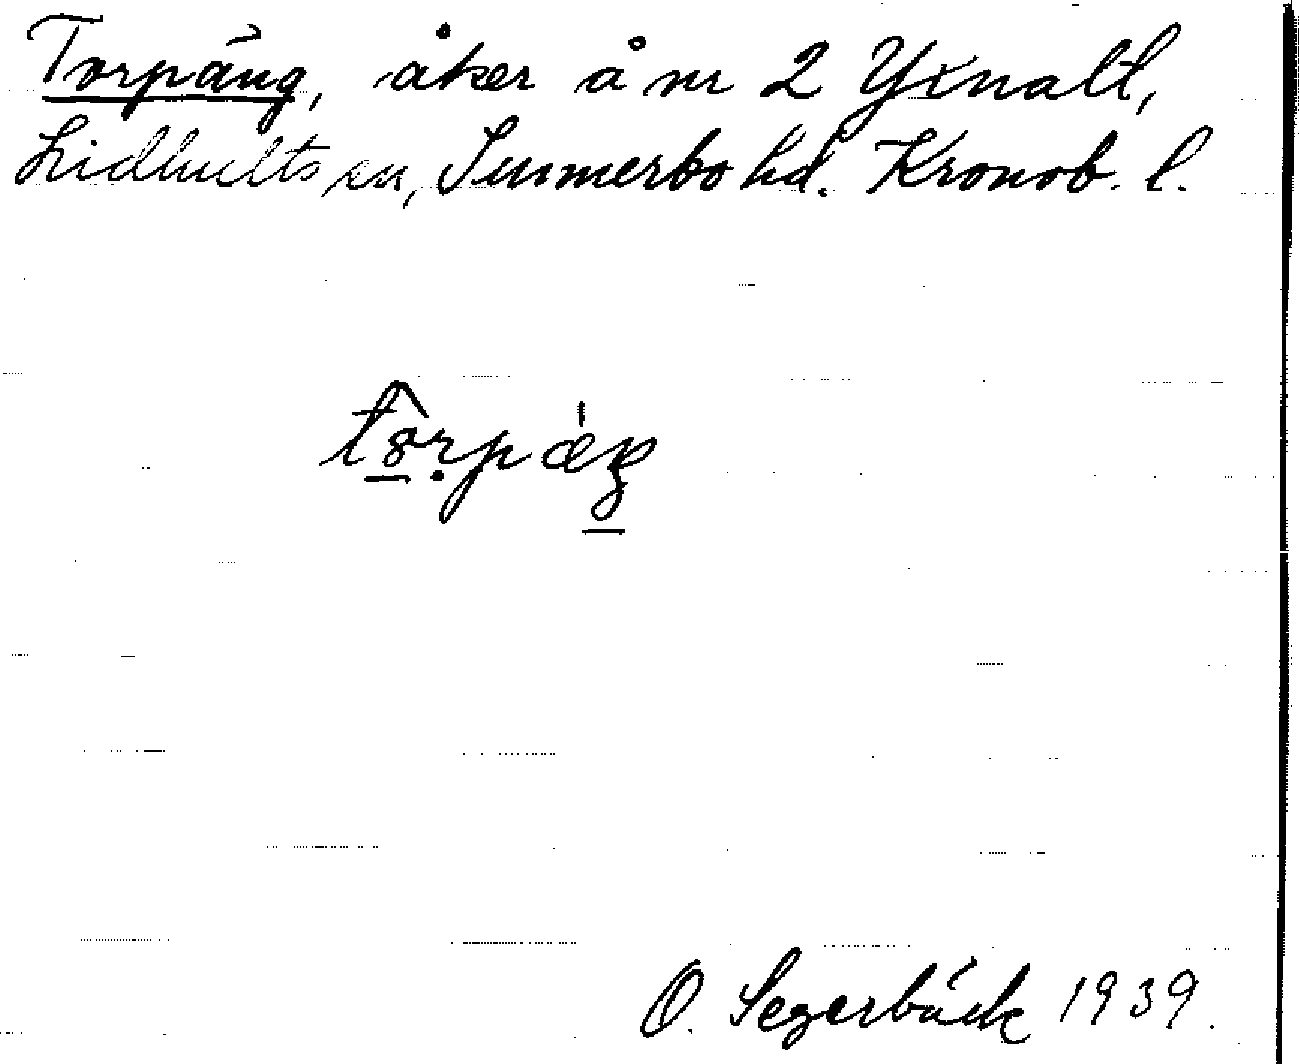 Torpäng, åker å nr 2 Yxnalt,
Lidhults sn, Sunnerbo hd. Kronob. l.
O. Segerbäck 1939.